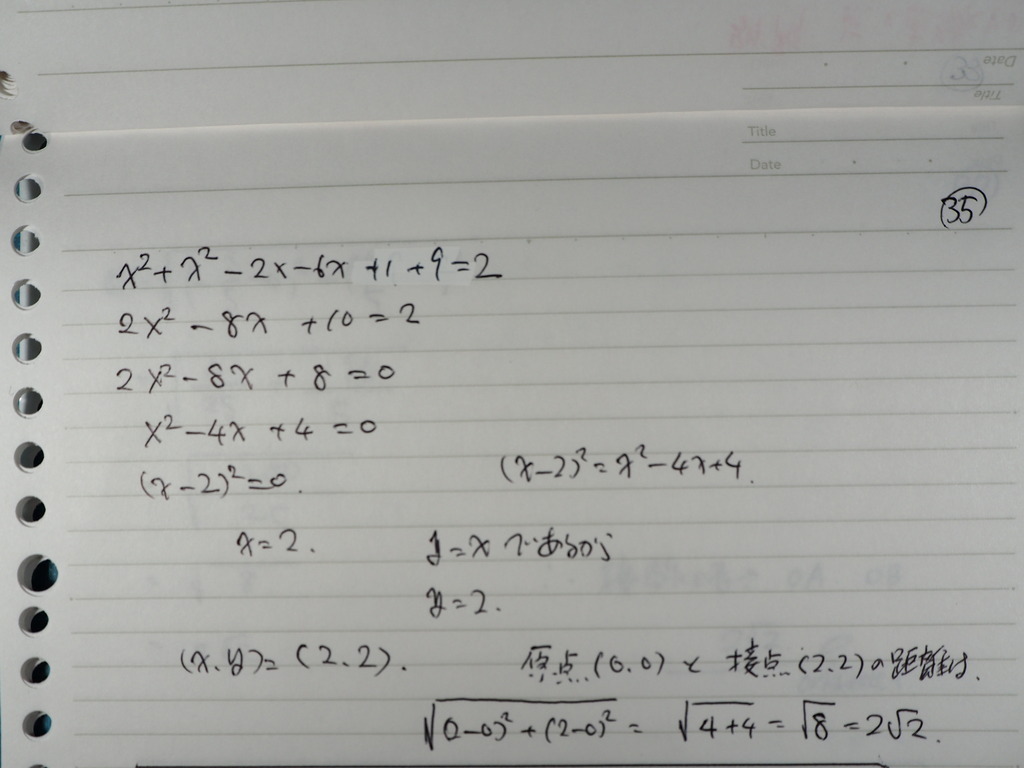 Date
Title
Title
Date
㉟
x² + x² - 2x - 6x + 1 + 9 = 2
2x² - 8x + 10 = 2
2x² - 8x + 8 = 0
x² - 4x + 4 = 0
(x-2)² = 0. (x-2)² = x² - 4x + 4.
x = 2. y = x であるから
y = 2.
(x.y) = (2.2). 原点(0.0)と接点(2.2)の距離は.
√(2-0)² + (2-0)² = √4+4 = √8 = 2√2.